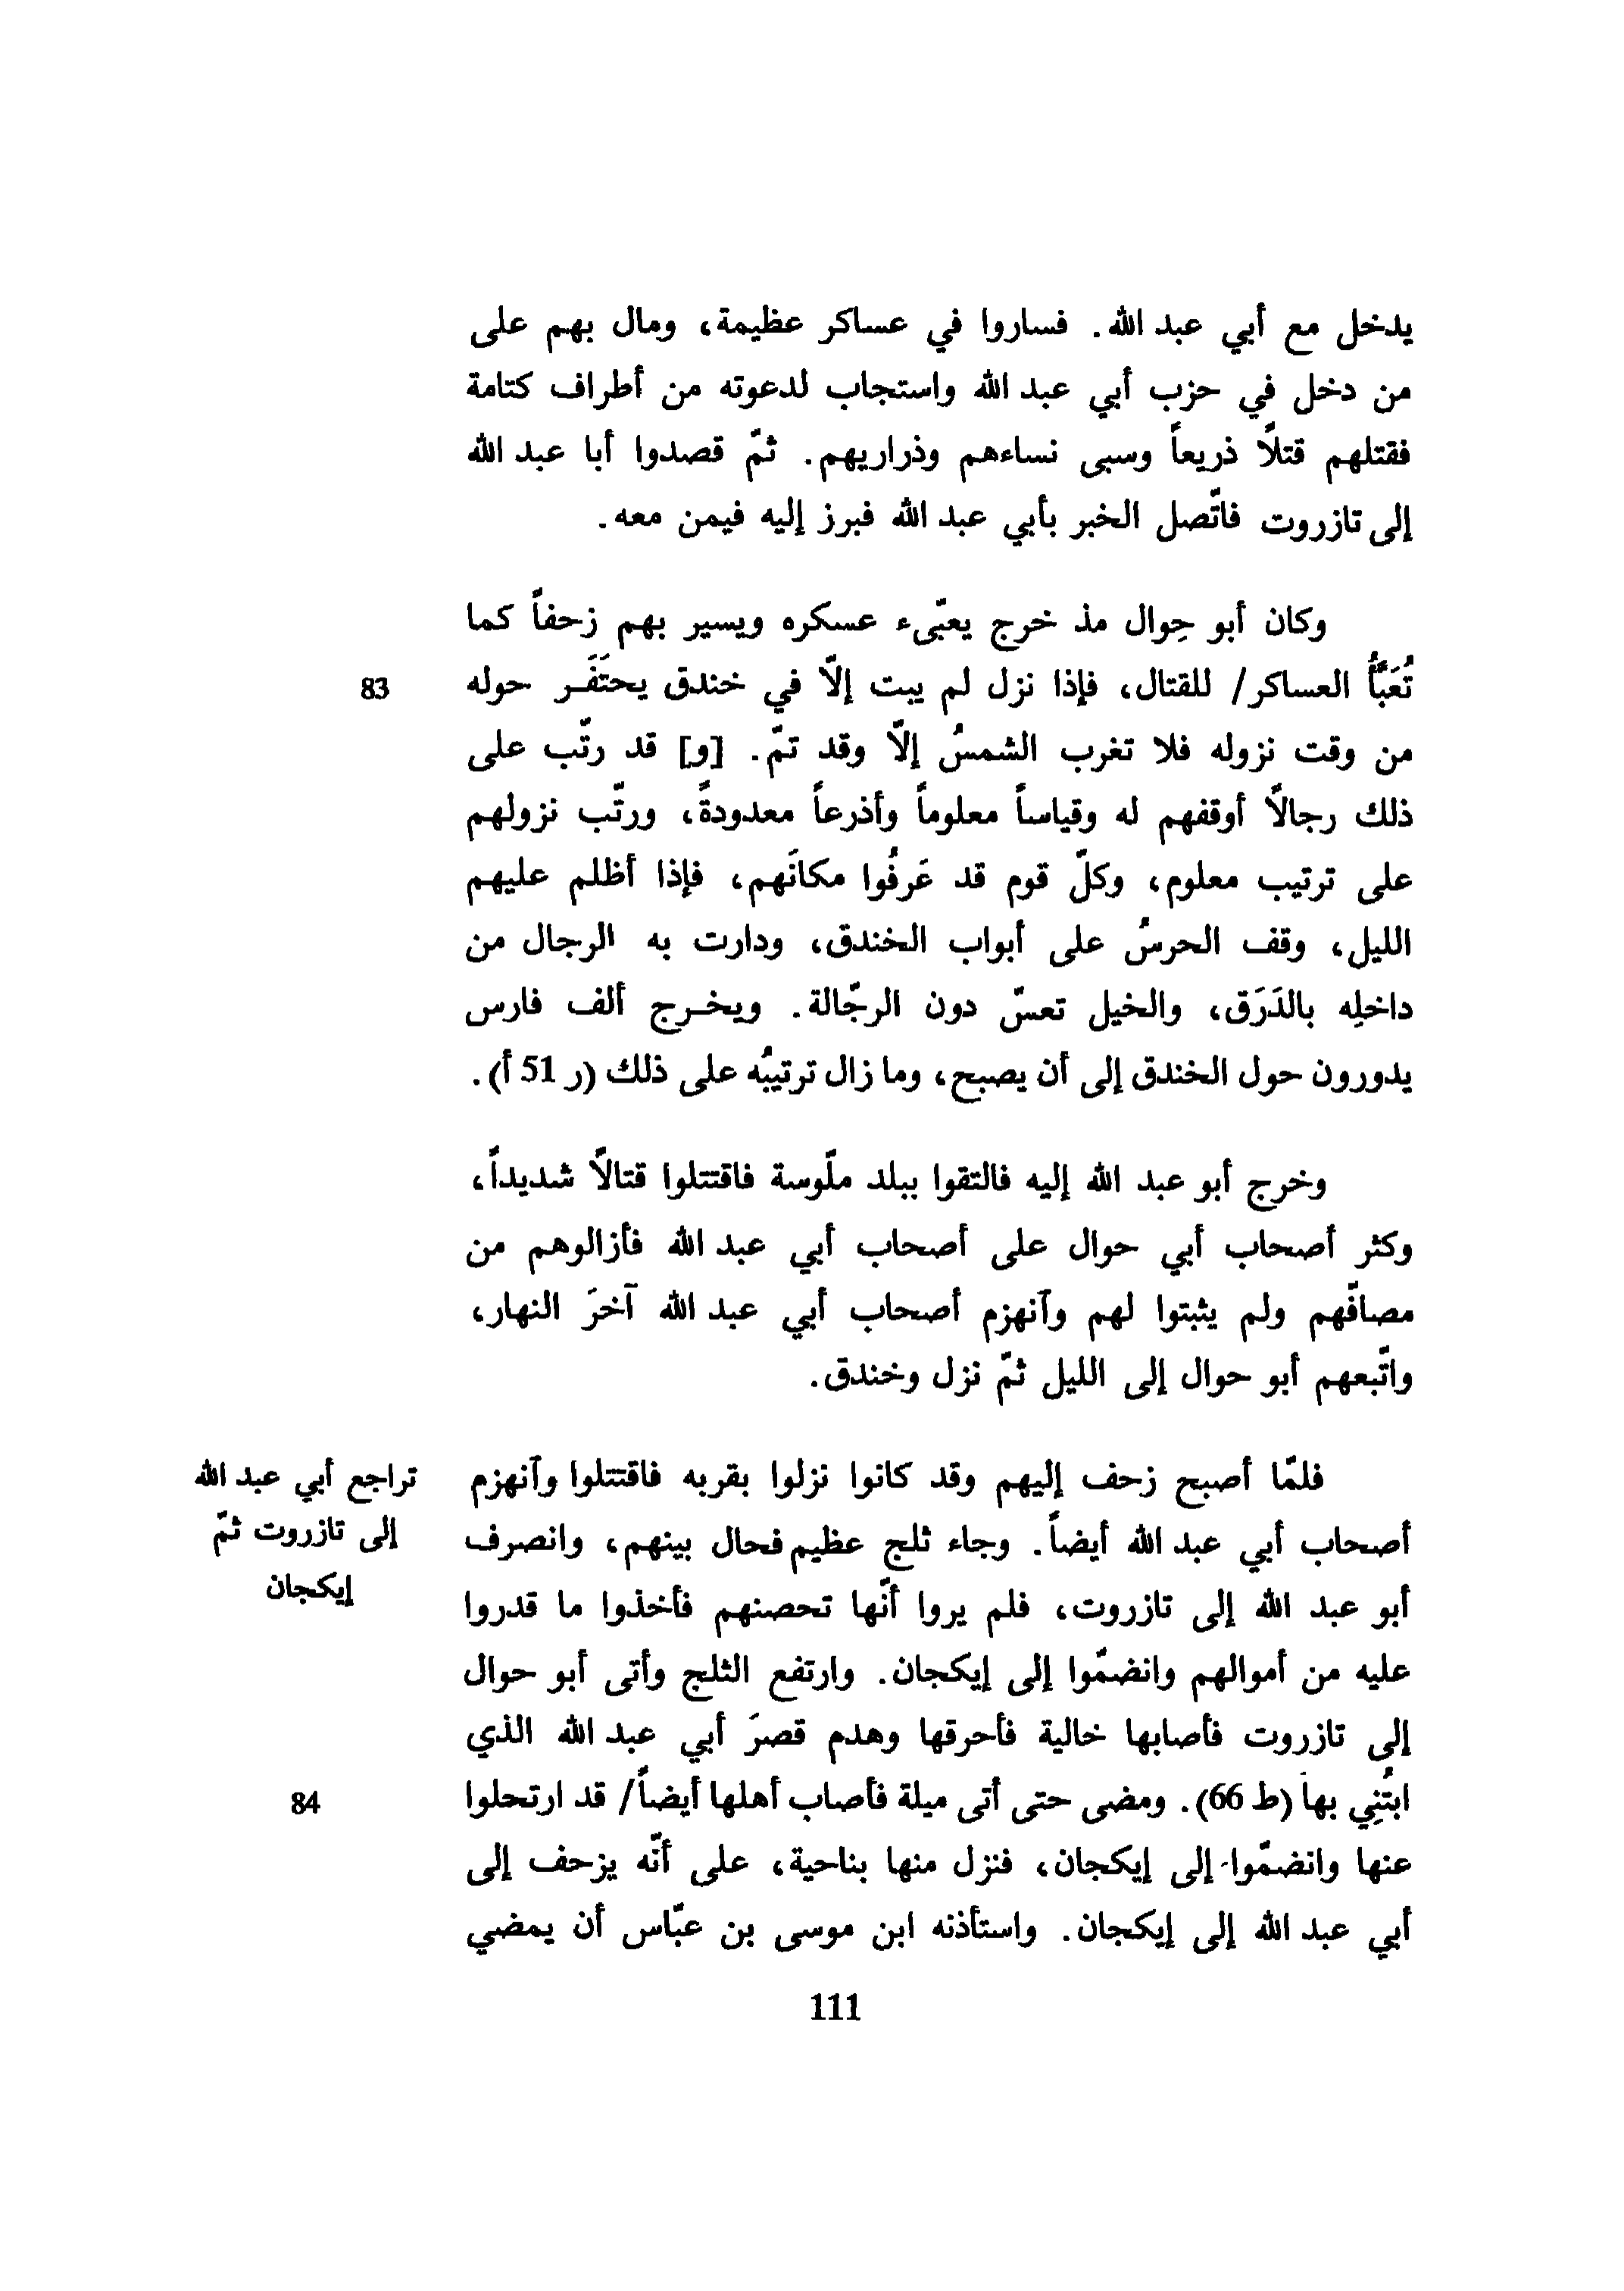 يدخل مع أبي عبد الله. فساروا في عساكر عظيمة، ومال بهم على
من دخل في حزب أبي عبد الله واستجاب لدعوته من أطراف كتامة
فقتلهم قتلاً ذريعاً وسبى نساءهم وذراريهم. ثمّ قصدوا أبا عبد الله
إلى تازروت فاتّصل الخبر بأبي عبد الله فبرز إليه فيمن معه.
وكان أبو حِوال مذ خرج يعبّىء عسكره ويسير بهم زحفاً كما
تُعَبَّأُ العساكر/ للقتال، فإذا نزل لم يبت إلاّ في خندق يحتَفَر حوله
83
من وقت نزوله فلا تغرب الشمسُ إلاّ وقد تمّ. [و] قد رتّب على
ذلك رجالاً أوقفهم له وقياساً معلوماً وأذرعاً معدودةً، ورتّب نزولهم
على ترتيب معلوم، وكلّ قوم قد عَرفُوا مكانَهم، فإذا أظلم عليهم
الليل، وقف الحرسُ على أبواب الخندق، ودارت به الرجال من
داخلِه بالدَرَق، والخيل تعسّ دون الرجّالة. ويخرج ألف فارس
يدورون حول الخندق إلى أن يصبح، وما زال ترتيبُه على ذلك (ر 51 أ).
وخرج أبو عبد الله إليه فالتقوا ببلد ملّوسة فاقتتلوا قتالاً شديداً،
وكثر أصحاب أبي حوال على أصحاب أبي عبد الله فأزالوهم من
مصافّهم ولم يثبتوا لهم وآنهزم أصحاب أبي عبد الله آخرَ النهار،
واتّبعهم أبو حوال إلى الليل ثمّ نزل وخندق.
فلمّا أصبح زحف إليهم وقد كانوا نزلوا بقربه فاقتتلوا وآنهزم
أصحاب أبي عبد الله أيضاً. وجاء ثلج عظيم فحال بينهم، وانصرف
أبو عبد الله إلى تازروت، فلم يروا أنّها تحصنهم فأخذوا ما قدروا
عليه من أموالهم وانضمّوا إلى إيكجان. وارتفع الثلج وأتى أبو حوال
إلى تازروت فأصابها خالية فأحرقها وهدم قصرَ أبي عبد الله الذي
ابتُنِي بها (ط 66). ومضى حتى أتى ميلة فأصاب أهلها أيضاً/ قد ارتحلوا
عنها وانضمّوا إلى إيكجان، فنزل منها بناحية، على أنّه يزحف إلى
أبي عبد الله إلى إيكجان. واستأذنه ابن موسى بن عبّاس أن يمضي
تراجع أبي عبد الله
إلى تازروت ثمّ
إيكجان
84
111